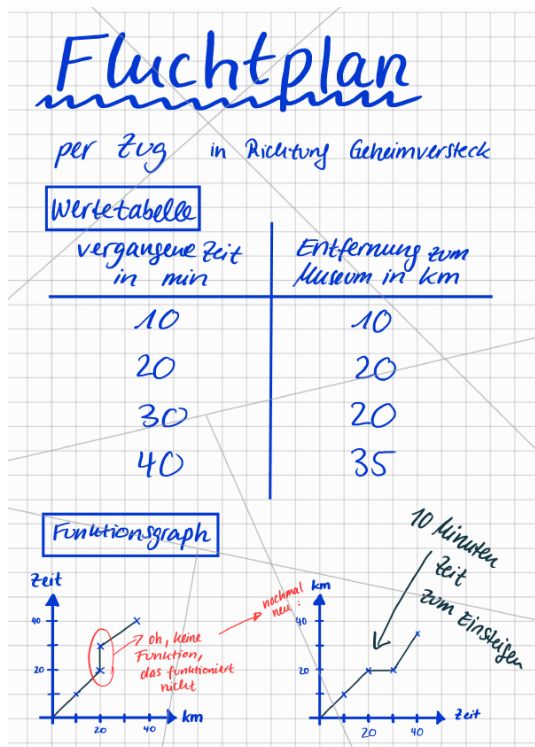 Fluchtplan
per Zug in Richtung Geheimversteck
Wertetabelle
vergangene Zeit in min
Entfernung zum Museum in km
10 10
20 20
30 20
40 35
Funktionsgraph
Zeit
40
20
20 40
km
oh, keine
Funktion,
das funktioniert
nicht
nochmal
neu:
km
40
20
20 40
Zeit
10 Minuten
Zeit
zum Einsteigen